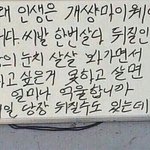 래 인생은 개쌍마이웨이
니다. 씨발 한번살다 뒤질인
의 눈치 살살 봐가면서
하고 싶은거 못하고 살면
얼마나 억울합니까
일 당장 뒤질수도 있는데